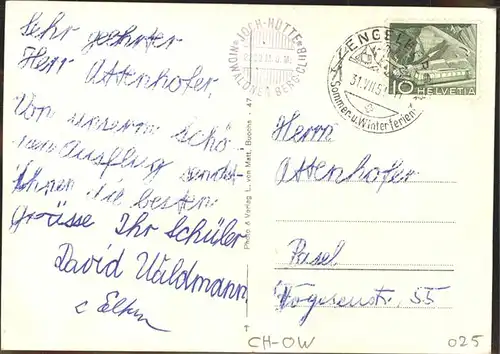 Sehr geehrter
Herr Attenhofer.
Von unserem schö
nen Ausflug sendet
Ihnen die besten
Grüsse Ihr Schüler
David Waldmann
c Eltern
JOCH-HÜTTE
NIDWALDNER BERG-CLUB
ENGELBERG
31.VII.51
Sommer-u.Winterferien
10 HELVETIA
Photo & Verlag L. von Matt, Buochs - 47
Herrn
Attenhofer
Basel
Vogesenstr. 55
CH-OW
025